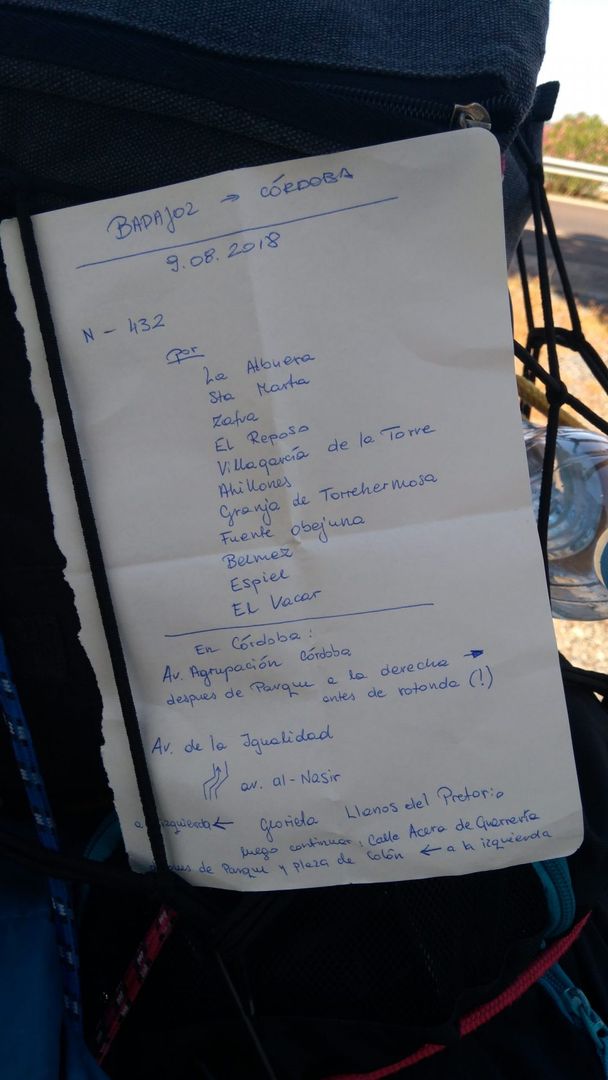 BADAJOZ → CÓRDOBA
9.08.2018
N - 432
por
La Albuera
Sta Marta
Zafra
El Reposo
Villagarcía de la Torre
Ahillones
Granja de Torrehermosa
Fuente Obejuna
Belmez
Espiel
EL Vacar
En Córdoba:
Av. Agrupación Córdoba
despues de Parque a la derecha →
antes de rotonda (!)
Av. de la Igualidad
av. al-Nasir
a izquierda ← Glorieta Llanos del Pretorio
luego continuar: Calle Acera de Guerrería
de Parque y plaza de Colón ← a la izquierda